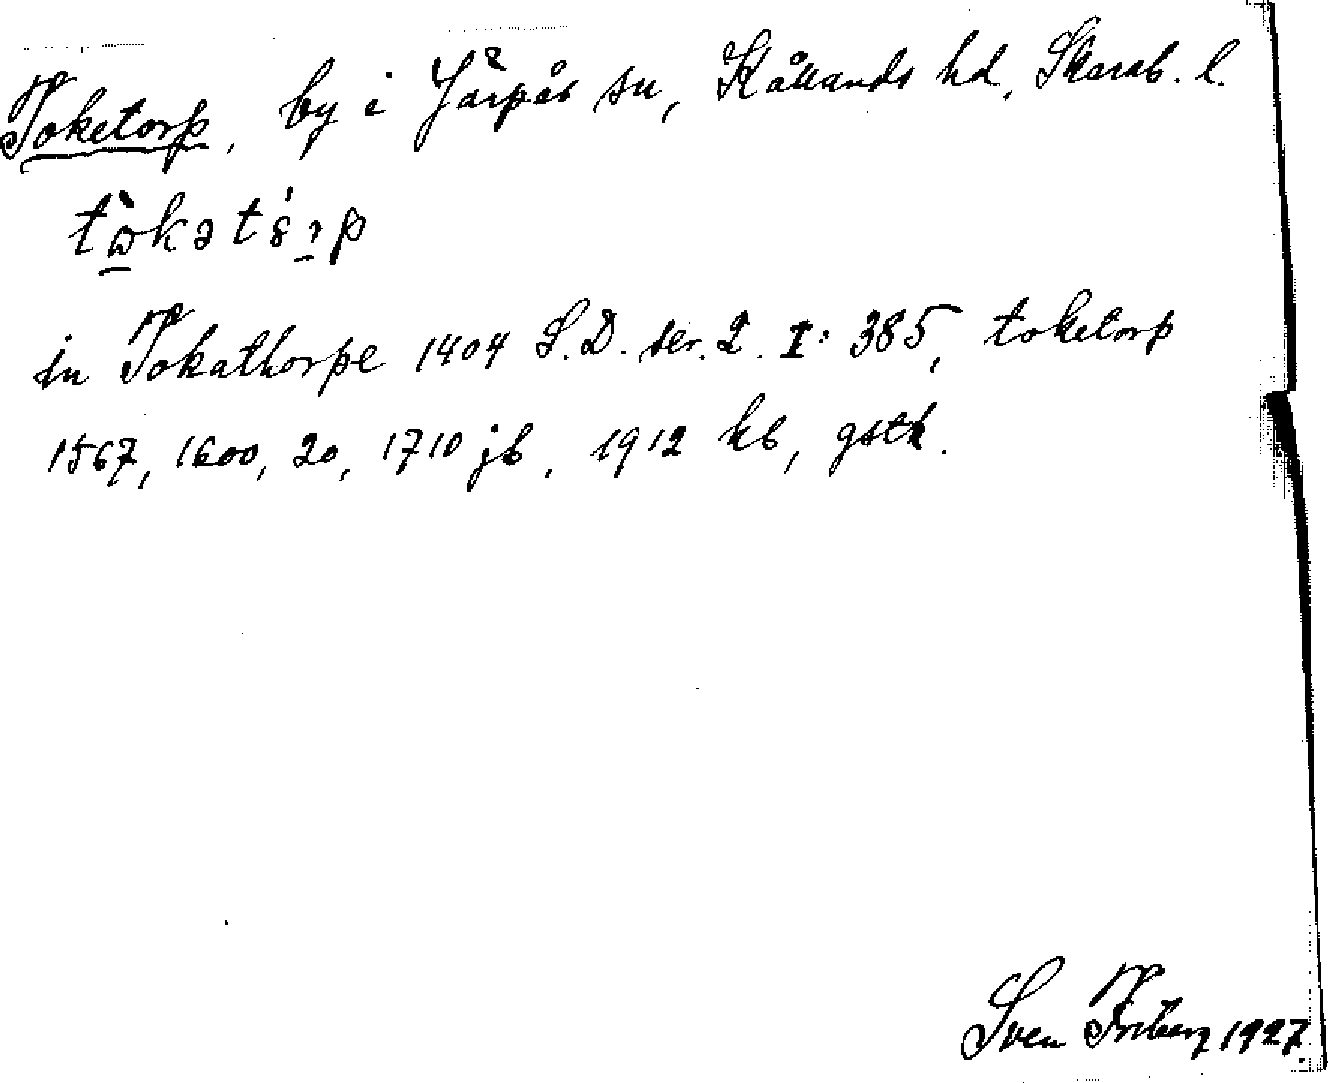 Toketorp, by i Järpås sn, Kållands hd, Skarab. l.
tòkətórp
in Tokathorpe 1404 S.D. ser. 2. I: 385, toketorp
1567, 1600, 20, 1710 jb, 1912 kb, gstk.
Sven Friberg 1927.